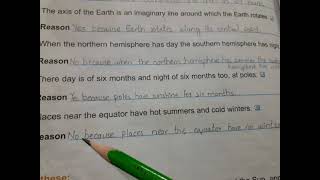 The axis of the Earth is an imaginary line around which the Earth rotates.
Reason Yes because Earth rotates along its central axis.
When the northern hemisphere has day the southern hemisphere has night
Reason No because when the northern hemisphere has summer the southern
hemisphere has
There day is of six months and night of six months too, at poles.
Reason Yes because poles have sunshine for six months.
laces near the equator have hot summers and cold winters.
eason No because places near the equator have no wint
these:
the Sun, and